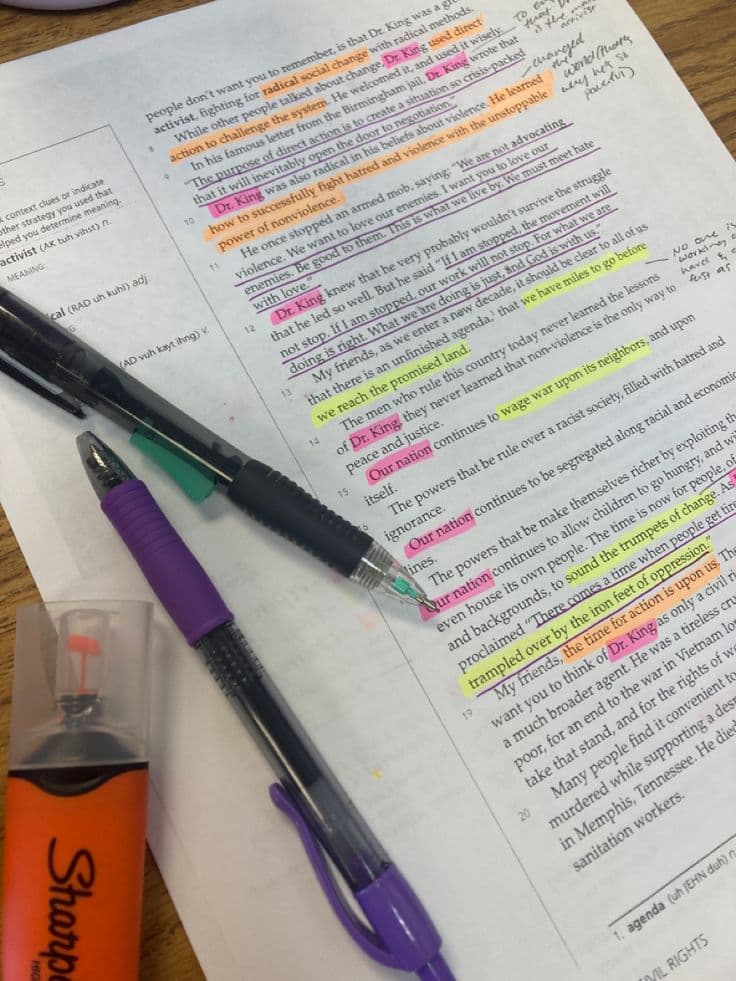 people don't want you to remember, is that Dr. King was a
activist, fighting for radical social change with radical methods.
8
While other people talked about change, Dr. King used direct
action to challenge the system. He welcomed it, and used it wisely.
9
In his famous letter from the Birmingham jail, Dr. King wrote that
"The purpose of direct action is to create a situation so crisis-packed
that it will inevitably open the door to negotiation."
10
Dr. King was also radical in his beliefs about violence. He learned
how to successfully fight hatred and violence with the unstoppable
power of nonviolence.
11
He once stopped an armed mob, saying: "We are not advocating
violence. We want to love our enemies. I want you to love our
enemies. Be good to them. This is what we live by. We must meet hate
with love."
12
Dr. King knew that he very probably wouldn't survive the struggle
that he led so well. But he said "If I am stopped, the movement will
not stop. If I am stopped, our work will not stop. For what we are
doing is right. What we are doing is just, and God is with us."
13
My friends, as we enter a new decade, it should be clear to all of us
that there is an unfinished agenda,¹ that we have miles to go before
we reach the promised land.
14
The men who rule this country today never learned the lessons
of Dr. King, they never learned that non-violence is the only way to
peace and justice.
15
Our nation continues to wage war upon its neighbors, and upon
itself.
The powers that be rule over a racist society, filled with hatred and
ignorance.
Our nation continues to be segregated along racial and economic
lines.
The powers that be make themselves richer by exploiting the
Our nation continues to allow children to go hungry, and
even house its own people. The time is now for people, of
and backgrounds, to sound the trumpets of change. As
proclaimed "There comes a time when people get tired
trampled over by the iron feet of oppression."
19
My friends, the time for action is upon us. The
want you to think of Dr. King as only a civil
a much broader agent. He was a tireless
poor, for an end to the war in Vietnam
take that stand, and for the rights of
20
Many people find it convenient to
murdered while supporting a
in Memphis, Tennessee. He died
sanitation workers.
1. agenda (uh JEHN duh) n.
CIVIL RIGHTS
context clues or indicate
other strategy you used that
helped you determine meaning.
activist (AK tuh vihst) n.
MEANING:
ical (RAD uh kuhl) adj.
G:
(AD vuh kayt ihng) v.
changed
the
world (that's
why he's so
powerful)
no one is
working
fast as
Sharp